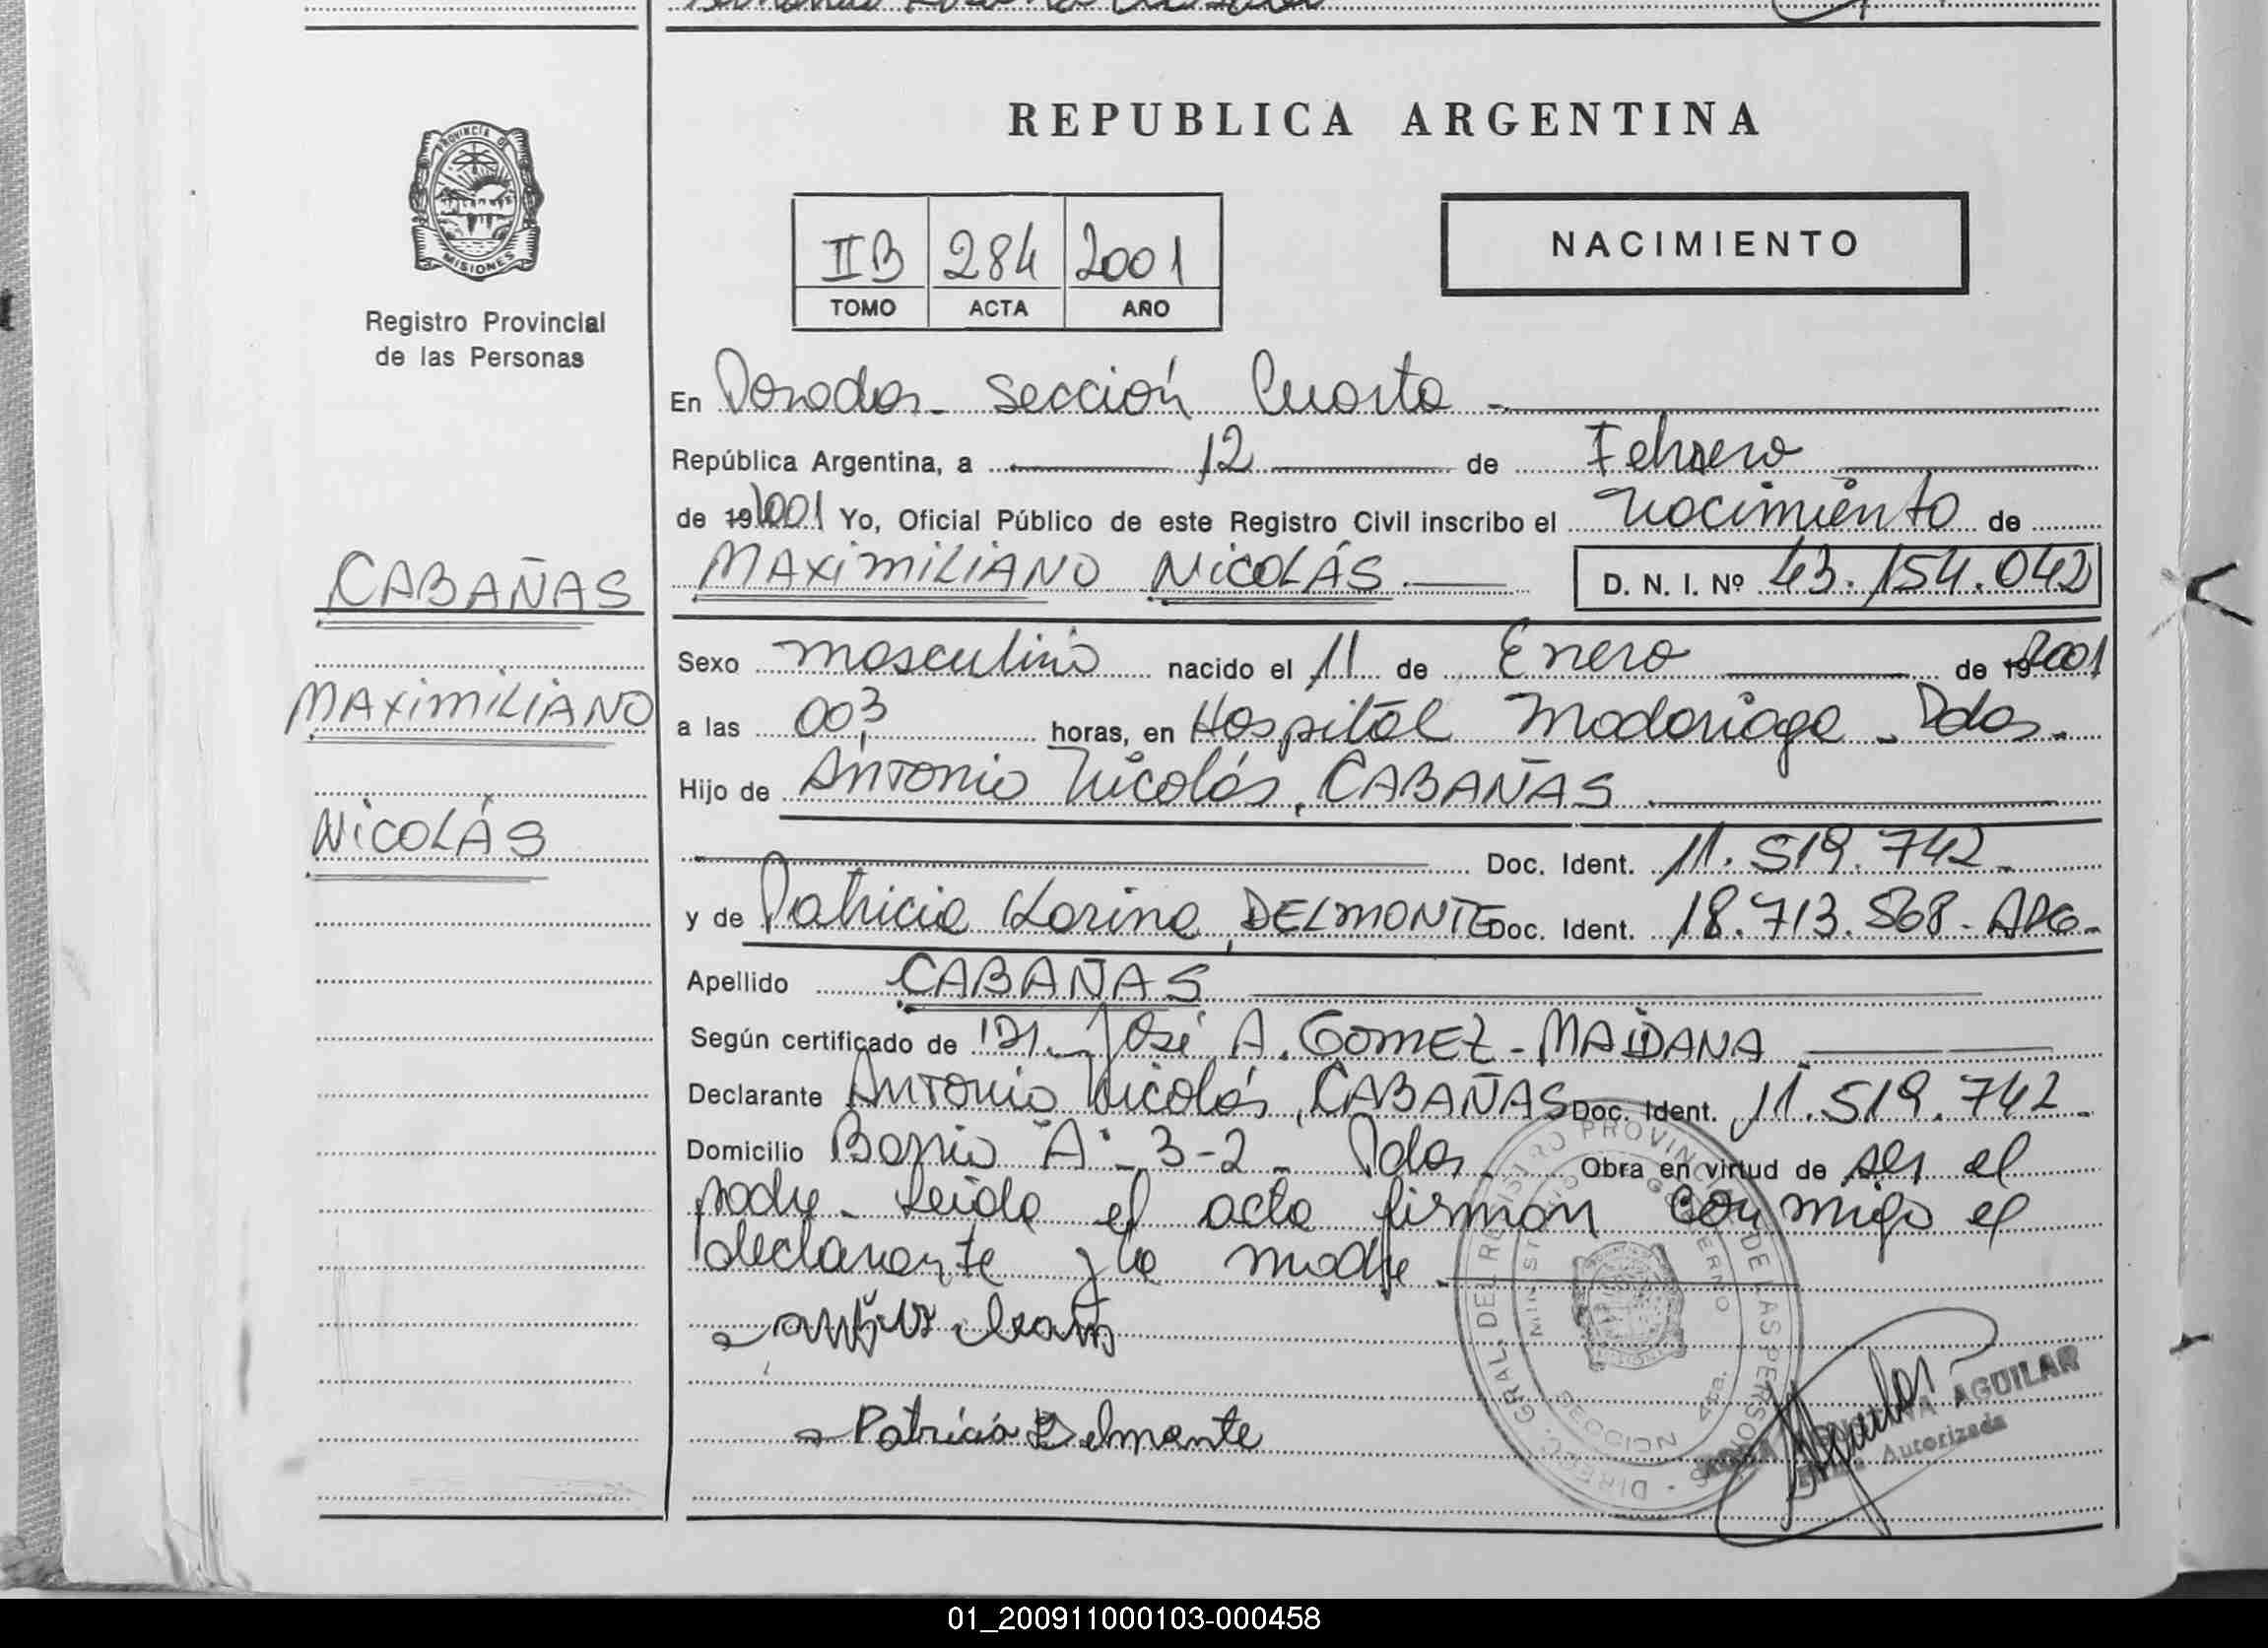 REPUBLICA ARGENTINA
PROVINCIA DE
MISIONES
Registro Provincial
de las Personas
IIB 284 2001
TOMO ACTA AÑO
NACIMIENTO
En Posadas - Sección Cuarta -
República Argentina, a 12 de Febrero
de 192001 Yo, Oficial Público de este Registro Civil inscribo el nacimiento de
MAXIMILIANO NICOLÁS D. N. I. Nº 43.154.042
CABAÑAS
Sexo masculino nacido el 11 de Enero de 192001
MAXIMILIANO
a las 003 horas, en Hospital Madariaga - Pdas.
Hijo de Antonio Nicolás, CABAÑAS
NICOLÁS
Doc. Ident. 11.519.742 -
y de Patricia Karina, DELMONTE Doc. Ident. 18.713.568 - ARG -
Apellido CABAÑAS
Según certificado de Dr. José A. GOMEZ - MAIDANA
Declarante Antonio Nicolás, CABAÑAS Doc. Ident. 11.519.742 -
Domicilio Barrio "A" - 3-2 - Pdas. Obra en virtud de ser el
padre - Leída el acta firman conmigo el
declarante y la madre -
Patricia Delmonte
DIREC. GRAL. DEL REGISTRO PROVINCIAL DE LAS PERSONAS
MINISTERIO GOBIERNO
SECCION 4ta.
AGUILAR
Autorizada
01_200911000103-000458